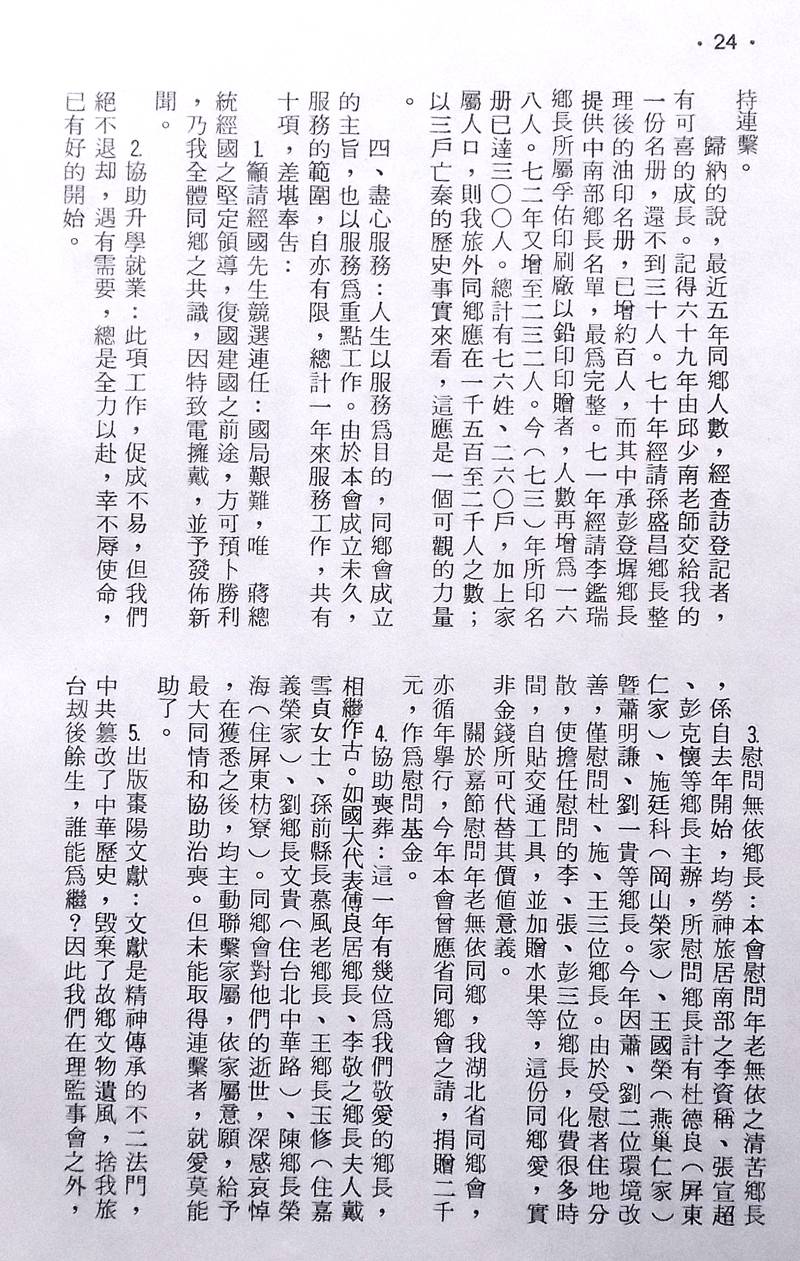 • 24 •
持連繫。
歸納的說，最近五年同鄉人數，經查訪登記者，
有可喜的成長。記得六十九年由邱少南老師交給我的
一份名册，還不到三十人。七十年經請孫盛昌鄉長整
理後的油印名册，已增約百人，而其中承彭登墀鄉長
提供中南部鄉長名單，最爲完整。七一年經請李鑑瑞
鄉長所屬孚佑印刷廠以鉛印印贈者，人數再增爲一六
八人。七二年又增至二三二人。今（七三）年所印名
册已達三〇〇人。總計有七六姓、二六〇戶，加上家
屬人口，則我旅外同鄉應在一千五百至二千人之數；
以三戶亡秦的歷史事實來看，這應是一個可觀的力量
。
四、盡心服務：人生以服務爲目的，同鄉會成立
的主旨，也以服務爲重點工作。由於本會成立未久，
服務的範圍，自亦有限，總計一年來服務工作，共有
十項，差堪奉告：
1.籲請經國先生競選連任：國局艱難，唯　蔣總
統經國之堅定領導，復國建國之前途，方可預卜勝利
，乃我全體同鄉之共識，因特致電擁戴，並予發佈新
聞。
2.協助升學就業：此項工作，促成不易，但我們
絕不退却，遇有需要，總是全力以赴，幸不辱使命，
已有好的開始。
3.慰問無依鄉長：本會慰問年老無依之清苦鄉長
，係自去年開始，均勞神旅居南部之李資稱、張宣超
、彭克懷等鄉長主辦，所慰問鄉長計有杜德良（屏東
仁家）、施廷科（岡山榮家）、王國榮（燕巢仁家）
曁蕭明謙、劉一貴等鄉長。今年因蕭、劉二位環境改
善，僅慰問杜、施、王三位鄉長。由於受慰者住地分
散，使擔任慰問的李、張、彭三位鄉長，化費很多時
間，自貼交通工具，並加贈水果等，這份同鄉愛，實
非金錢所可代替其價値意義。
關於嘉節慰問年老無依同鄉，我湖北省同鄉會，
亦循年舉行，今年本會曾應省同鄉會之請，捐贈二千
元，作爲慰問基金。
4.協助喪葬：這一年有幾位爲我們敬愛的鄉長，
相繼作古。如國大代表傅良居鄉長、李敬之鄉長夫人戴
雪貞女士、孫前縣長慕風老鄉長、王鄉長玉修（住嘉
義榮家）、劉鄉長文貴（住台北中華路）、陳鄉長榮
海（住屏東枋寮）。同鄉會對他們的逝世，深感哀悼
，在獲悉之後，均主動聯繫家屬，依家屬意願，給予
最大同情和協助治喪。但未能取得連繫者，就愛莫能
助了。
5.出版棗陽文獻：文獻是精神傳承的不二法門，
中共篡改了中華歷史，毀棄了故鄉文物遺風，捨我旅
台刼後餘生，誰能爲繼？因此我們在理監事會之外，